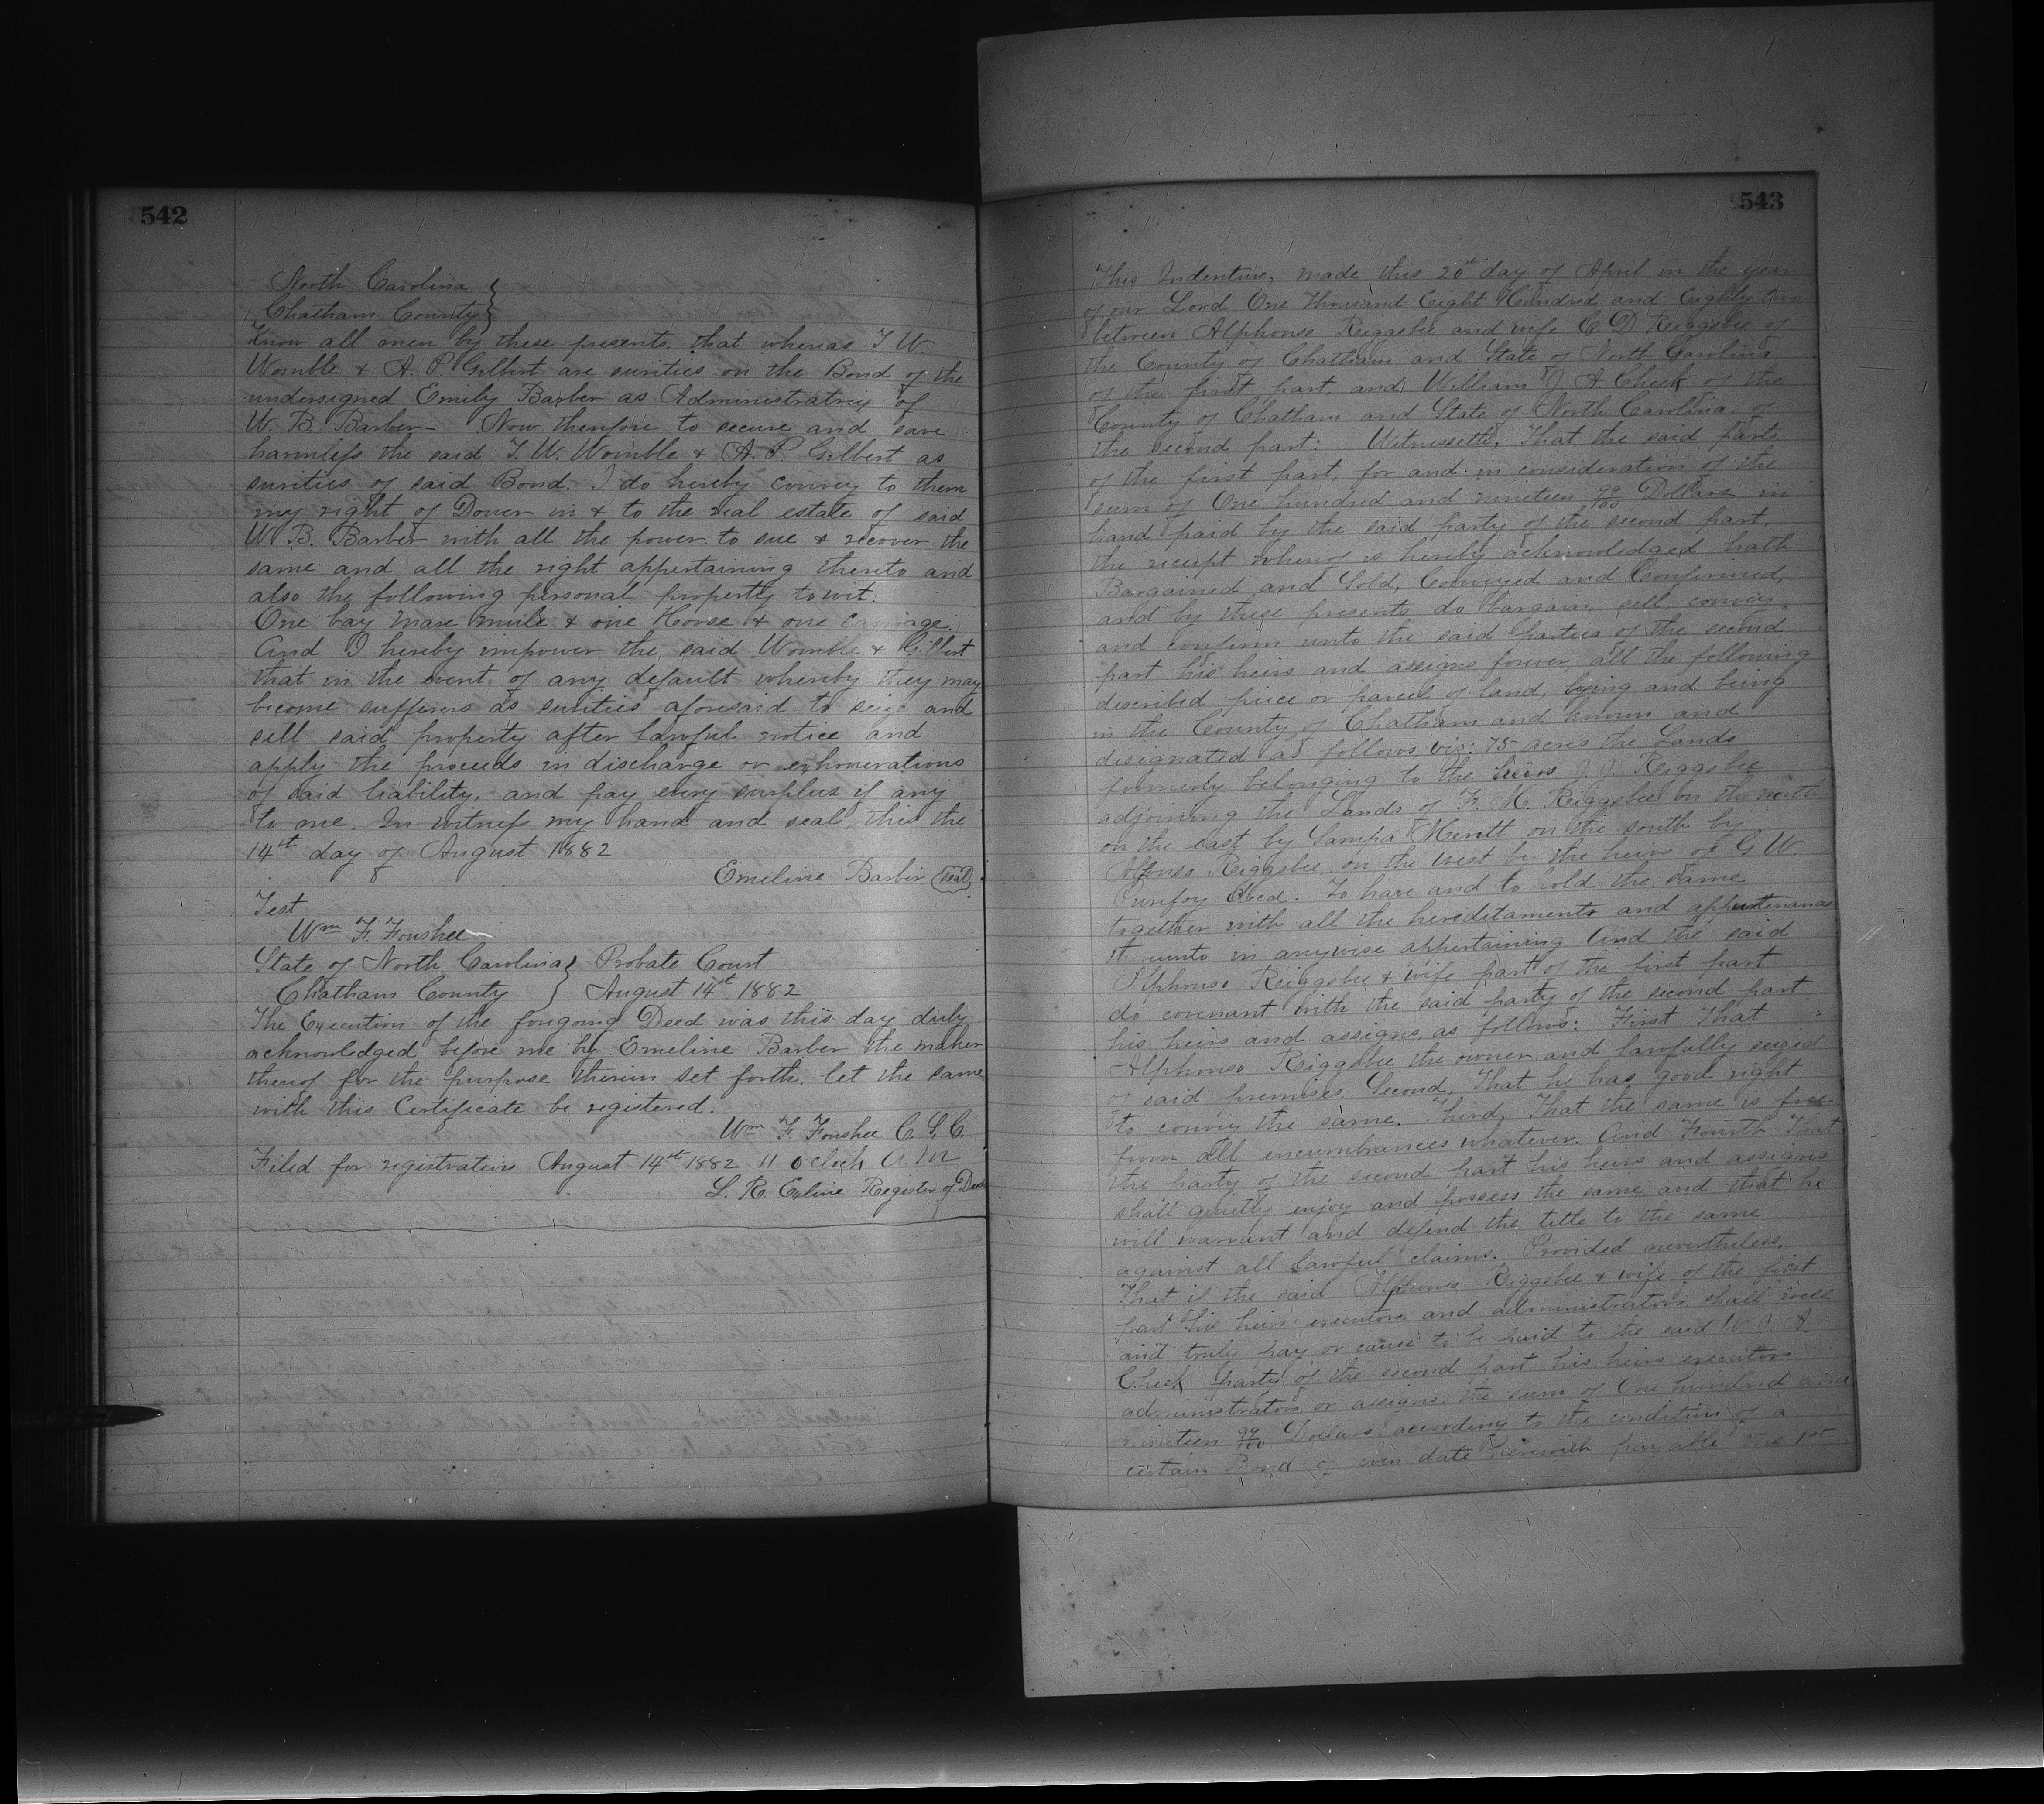 542
North Carolina }
Chatham County }
Know all men by these presents, that whereas T. W.
Womble & A. P. Gilbert are surities on the Bond of the
undersigned Emily Barber as Administratrix of
W. B. Barber - Now therefore to secure and save
harmless the said T. W. Womble & A. P. Gilbert as
surities of said Bond. I do hereby convey to them
my right of Dower in & to the real estate of said
W. B. Barber with all the power to sue & recover the
same and all the right appertaining thereto and
also the following personal property to wit:
One bay mare mule & one Horse & one carriage.
And I hereby impower the said Womble & Gilbert
that in the event of any default whereby they may
become sufferers as surities aforesaid to seize and
sell said property after lawful notice and
apply the proceeds in discharge or exhonerations
of said liability, and pay every surplus if any
to me. In witness my hand and seal this the
14st day of August 1882
Emeline Barber (seal)
Test
Wm F. Foushee
State of North Carolina } Probate Court
Chatham County } August 14st 1882
The Execution of the foregoing Deed was this day duly
acknowledged before me by Emeline Barber the maker
thereof for the purpose therein set forth. let the same
with this Certificate be registered.
Wm F. Foushee C. S. C.
Filed for registration August 14st 1882 11 oclock A. M
L. R. Exline Register of Deeds
543
This Indenture, made this 20th day of April in the year
of our Lord One Thousand Eight Hundred and Eighty two
between Alphonso Riggsbee and wife C. D. Riggsbee of
the County of Chatham and State of North Carolina
of the first part, and William J. A. Cheek of the
County of Chatham and State of North Carolina, of
the second part: Witnesseth, That the said parts
of the first part, for and in consideration of the
sum of One hundred and nineteen 99/100 Dollars in
hand paid by the said party of the second part,
the receipt whereof is hereby acknowledged hath
Bargained and Sold, Conveyed and Confirmed,
and by these presents do bargain, sell, convey
and confirm unto the said parties of the second
part his heirs and assigns forever, all the following
described piece or parcel of land, lying and being
in the County of Chatham and known and
designated as follows viz: 75 acres the Lands
formerly belonging to the heirs J. J. Riggsbee
adjoining the Lands of F. M. Riggsbee on the north
on the east by Sampa Meritt on the south by
Alfonso Riggsbee on the west by the heirs of G W
Purefoy decd. To have and to hold the same
together with all the hereditaments and appurtenances
thereunto in anywise appertaining And the said
Alphonso Riggsbee & wife part of the first part
do covenant with the said party of the second part
his heirs and assigns, as follows: First That
Alphonso Riggsbee the owner and lawfully seized
of said premises. Second, That he has good right
to convey the same. Third, That the same is free
from all encumbrances whatever. And Fourth That
the party of the second part his heirs and assigns
shall quietly enjoy and possess the same and that he
will warrant and defend the title to the same
against all lawful claims. Provided nevertheless,
That if the said Alphonso Riggsbee & wife of the first
part his heirs executors and administrators shall well
and truly pay or cause to be paid to the said W. J. A.
Cheek party of the second part his heirs executors
administrators or assigns, the sum of One hundred and
nineteen 99/100 Dollars according to the condition of a
certain Bond of even date herewith payable the 1st